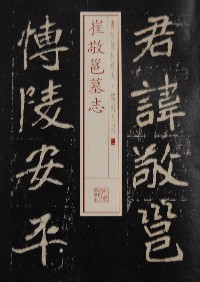 君諱敬邕
博陵安平
崔敬邕墓志